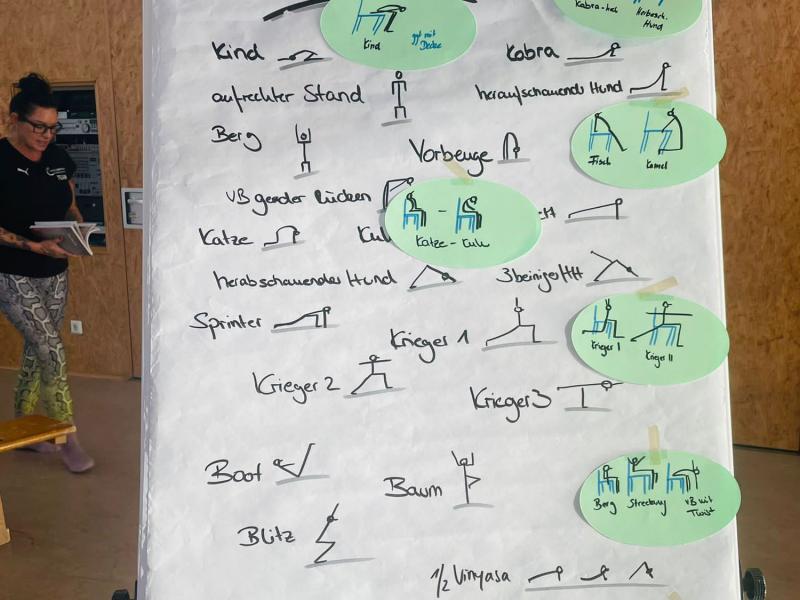 Kind
ggf mit Decke
Kobra-
Herbsch. Hund
Kind
Kobra
aufrechter Stand
heraufschauende Hund
Berg
Vorbeuge
Fisch
Kamel
VB gerader Rücken
Katze
Katze - Kuh
herabschauender Hund
3beiniger HH
Sprinter
Krieger 1
Krieger I
Krieger II
Krieger 2
Krieger 3
Boot
Baum
Berg
Streckung
VB mit Twist
Blitz
1/2 Vinyasa